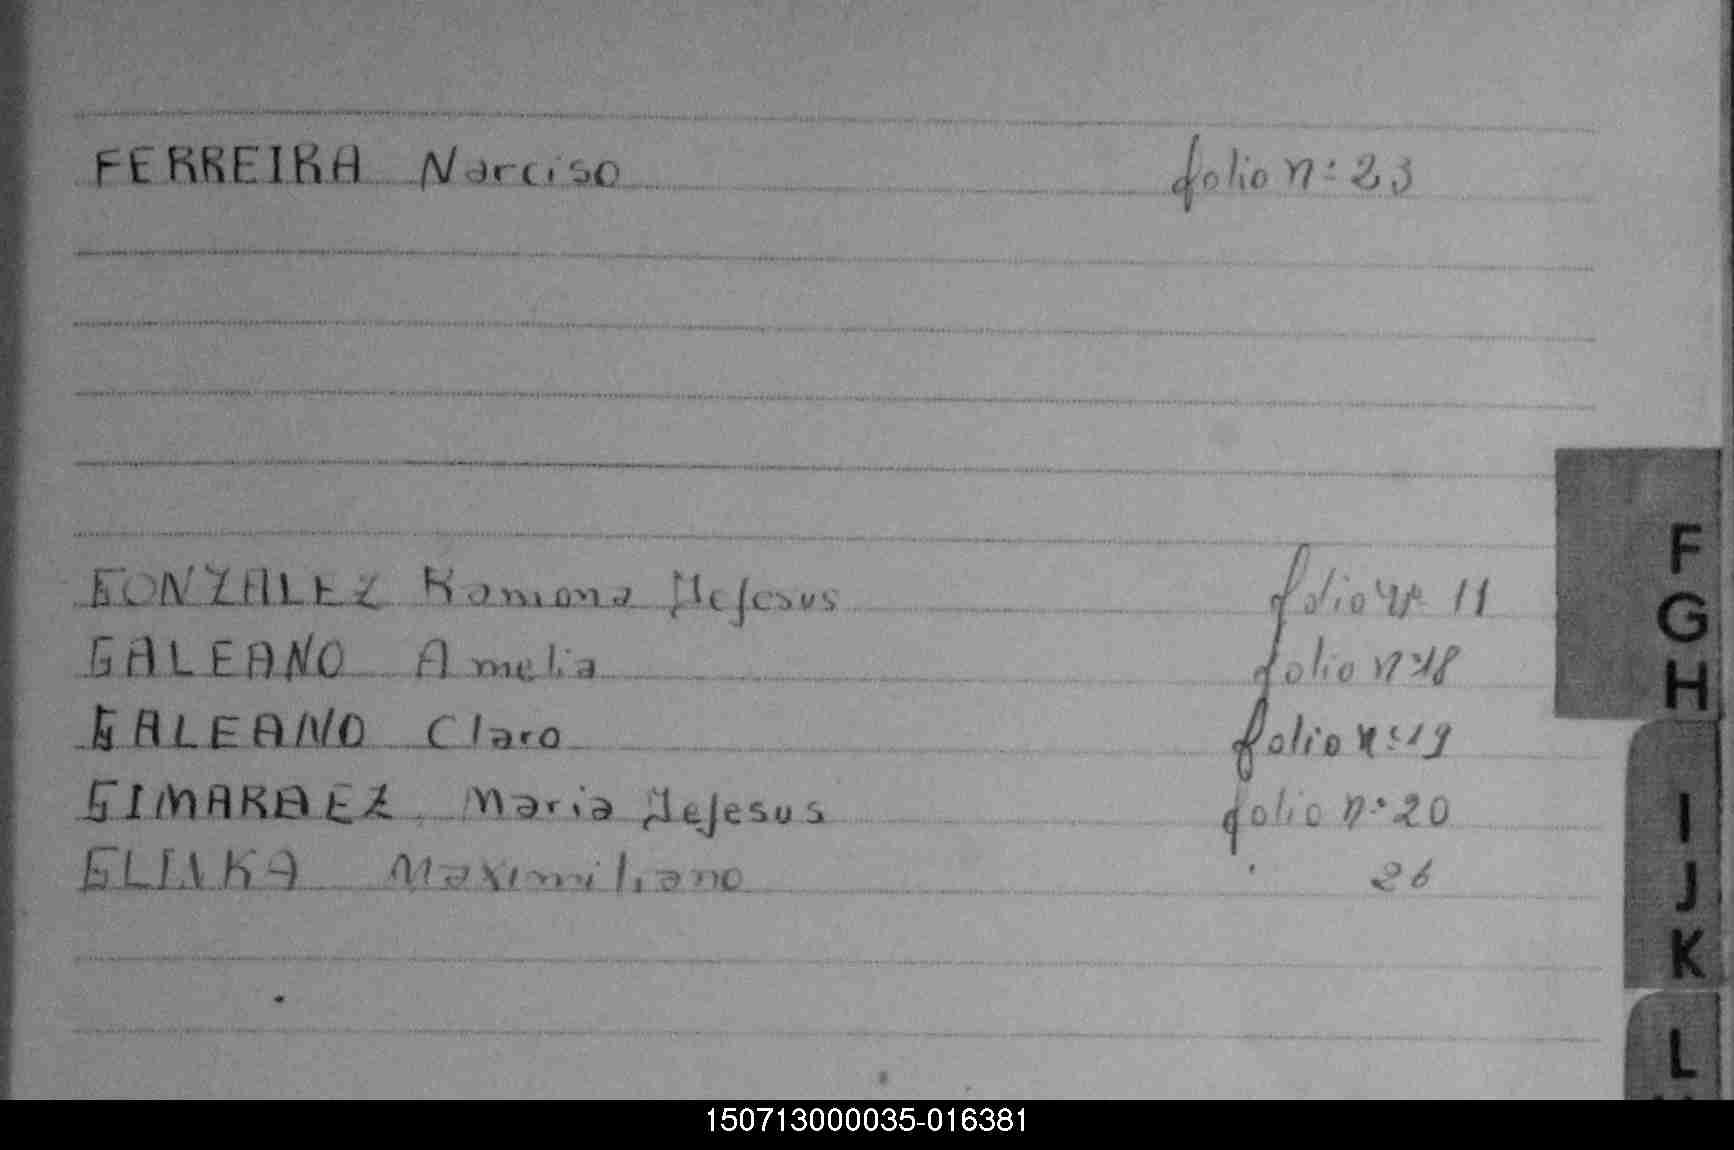 FERREIRA Narciso folio nº 23
F
GONZALEZ Ramona Dejesus folio nº 11
G
GALEANO Amelia folio nº 18
H
GALEANO Claro folio nº 19
GIMARAEZ Maria Dejesus folio nº 20
I
GLINKA Maximiliano " 26
J
K
L
150713000035-016381